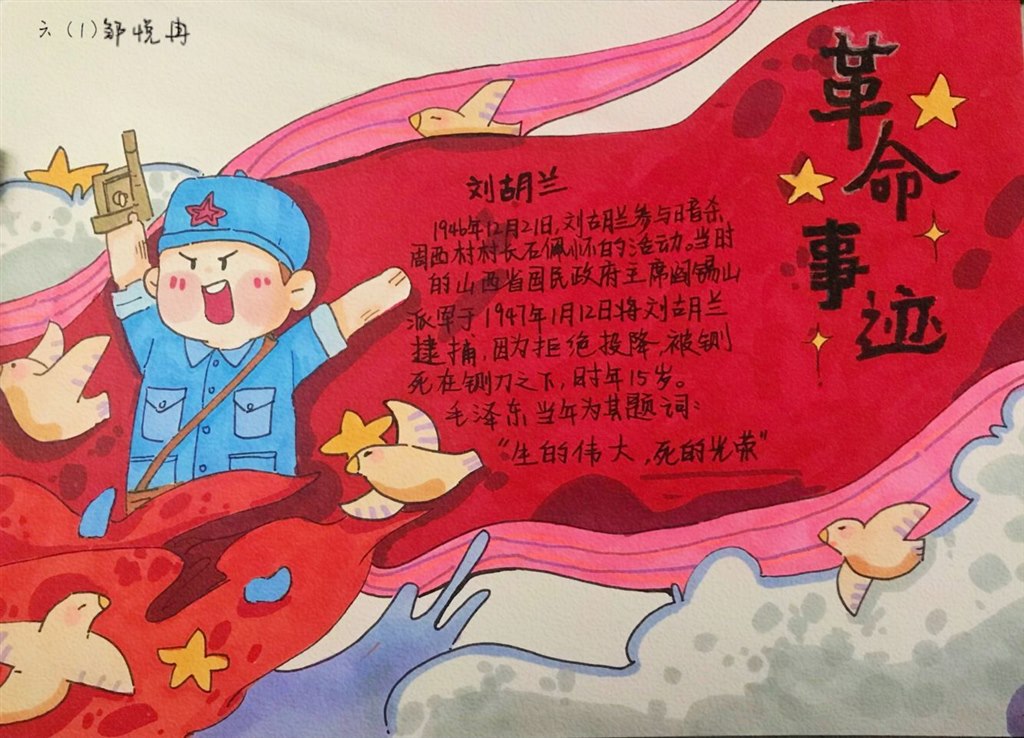 六(1)邹悦冉
革命事迹
刘胡兰
1946年12月21日,刘胡兰参与暗杀
周西村村长石佩怀的活动。当时
的山西省国民政府主席阎锡山
派军于1947年1月12日将刘胡兰
逮捕,因为拒绝投降,被铡
死在铡刀之下,时年15岁。
毛泽东当年为其题词:
“生的伟大,死的光荣”